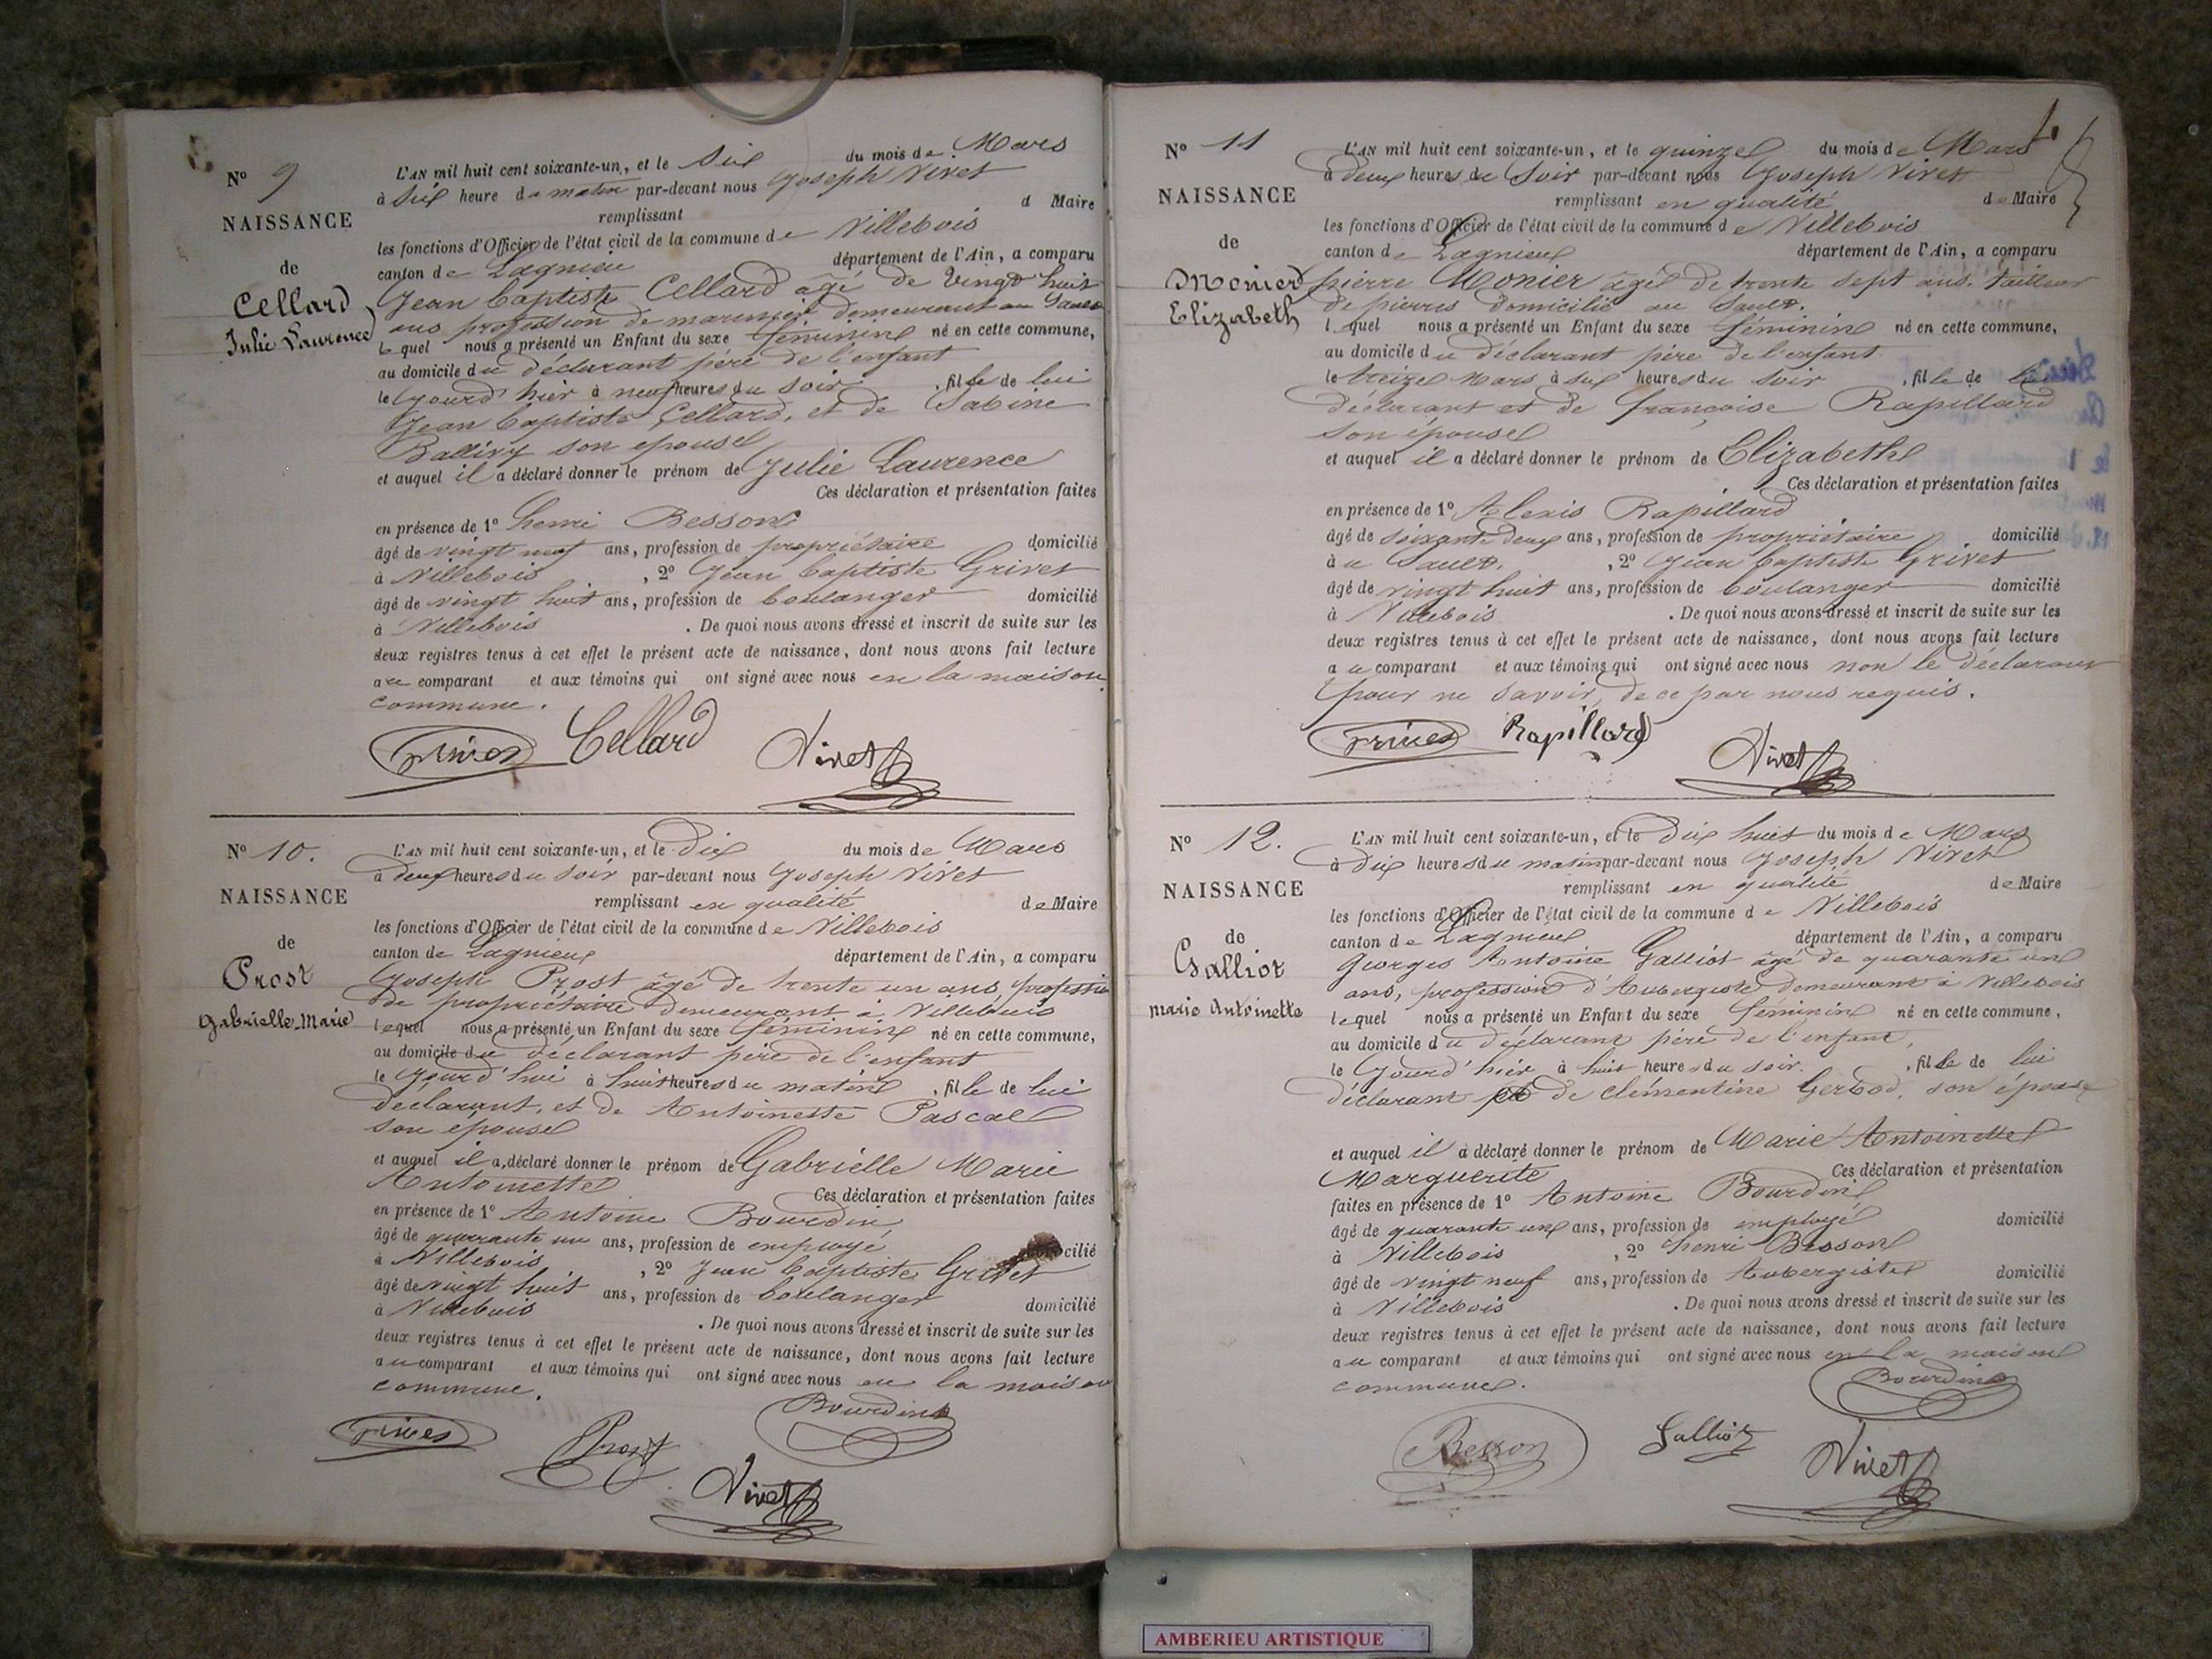 N° 9
NAISSANCE
de
Cellard
Julie Laurence
L'AN mil huit cent soixante-un, et le six du mois de Mars
à six heure du matin par-devant nous Joseph Vivet
remplissant d Maire
les fonctions d'Officier de l'état civil de la commune de Villebois
canton de Lagnieu département de l'Ain, a comparu
Jean baptiste Cellard âgé de vingt huit
ans profession de marinier demeurant au Sault
lequel nous a présenté un Enfant du sexe féminin né en cette commune,
au domicile du déclarant père de l'enfant
le jourd'hier à neuf heures du soir, fille de lui
Jean baptiste Cellard, et de Sabine
Ballivy son epouse
et auquel il a déclaré donner le prénom de Julie Laurence
Ces déclaration et présentation faites
en présence de 1° henri Besson
âgé de vingt neuf ans, profession de propriétaire domicilié
à Villebois, 2° Jean baptiste Grivet
âgé de vingt huit ans, profession de boulanger domicilié
à Villebois. De quoi nous avons dressé et inscrit de suite sur les
deux registres tenus à cet effet le présent acte de naissance, dont nous avons fait lecture
au comparant et aux témoins qui ont signé avec nous en la maison
commune.
Grivet Cellard Vivet
N° 10.
NAISSANCE
de
Prost
Gabrielle Marie
L'AN mil huit cent soixante-un, et le dix du mois de Mars
à deux heures du soir par-devant nous Joseph Vivet
remplissant en qualité de Maire
les fonctions d'Officier de l'état civil de la commune de Villebois
canton de Lagnieu département de l'Ain, a comparu
Joseph Prost âgé de trente un ans, profession
de propriétaire demeurant à Villebois
lequel nous a présenté un Enfant du sexe féminin né en cette commune,
au domicile du déclarant père de l'enfant
le jourd'hui à huit heures du matin, fille de lui
déclarant, et de Antoinette Pascal
son épouse
et auquel il a déclaré donner le prénom de Gabrielle Marie
Antoinette
Ces déclaration et présentation faites
en présence de 1° Antoine Bourdin
âgé de quarante un ans, profession de employé domicilié
à Villebois, 2° Jean baptiste Grivet
âgé de vingt huit ans, profession de boulanger domicilié
à Villebois. De quoi nous avons dressé et inscrit de suite sur les
deux registres tenus à cet effet le présent acte de naissance, dont nous avons fait lecture
au comparant et aux témoins qui ont signé avec nous en la maison
commune.
Bourdin
Grivet Prost
Vivet
N° 11
NAISSANCE
de
Monier
Elizabeth
L'AN mil huit cent soixante-un, et le quinze du mois de Mars
à deux heures du soir par-devant nous Joseph Vivet
remplissant en qualité de Maire
les fonctions d'Officier de l'état civil de la commune de Villebois
canton de Lagnieu département de l'Ain, a comparu
pierre Monier âgé de trente sept ans. tailleur
de pierres domicilié au Sault.
lequel nous a présenté un Enfant du sexe féminin né en cette commune,
au domicile du déclarant père de l'enfant
le treize Mars à six heures du soir, fille de lui
déclarant et de françoise Rapillard
son épouse
et auquel il a déclaré donner le prénom de Elizabeth
Ces déclaration et présentation faites
en présence de 1° Alexis Rapillard
âgé de soixante deux ans, profession de propriétaire domicilié
au Sault, 2° Jean baptiste Grivet
âgé de vingt huit ans, profession de boulanger domicilié
à Villebois. De quoi nous avons dressé et inscrit de suite sur les
deux registres tenus à cet effet le présent acte de naissance, dont nous avons fait lecture
au comparant et aux témoins qui ont signé avec nous non le déclarant
pour ne savoir, de ce par nous requis.
Grivet Rapillard
Vivet
N° 12.
NAISSANCE
de
Galliot
marie Antoinette
L'AN mil huit cent soixante-un, et le dix huit du mois de Mars
à dix heures du matin par-devant nous Joseph Vivet
remplissant en qualité de Maire
les fonctions d'Officier de l'état civil de la commune de Villebois
canton de Lagnieu département de l'Ain, a comparu
Georges Antoine Galliot âgé de quarante un
ans, profession d'Aubergiste demeurant à Villebois
lequel nous a présenté un Enfant du sexe féminin né en cette commune,
au domicile du déclarant père de l'enfant,
le jourd'hier à huit heures du soir, fille de lui
déclarant et de clémentine Gerbod, son épouse
et auquel il a déclaré donner le prénom de Marie Antoinette
Marguerite Ces déclaration et présentation
faites en présence de 1° Antoine Bourdin
âgé de quarante un ans, profession de employé domicilié
à Villebois, 2° henri Besson
âgé de vingt neuf ans, profession de Aubergiste domicilié
à Villebois. De quoi nous avons dressé et inscrit de suite sur les
deux registres tenus à cet effet le présent acte de naissance, dont nous avons fait lecture
au comparant et aux témoins qui ont signé avec nous en la maison
commune.
Bourdin
Besson Galliot
Vivet
AMBERIEU ARTISTIQUE